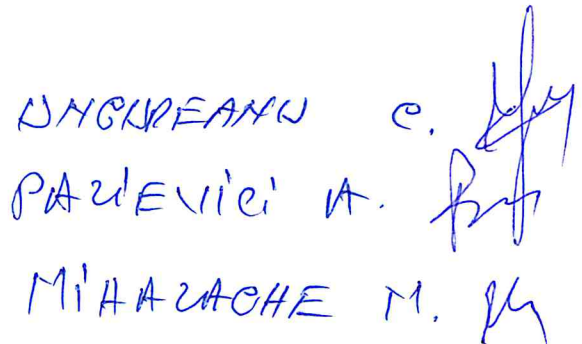 UNGUREANU C.
PALIEVICI A.
MIHALACHE M.